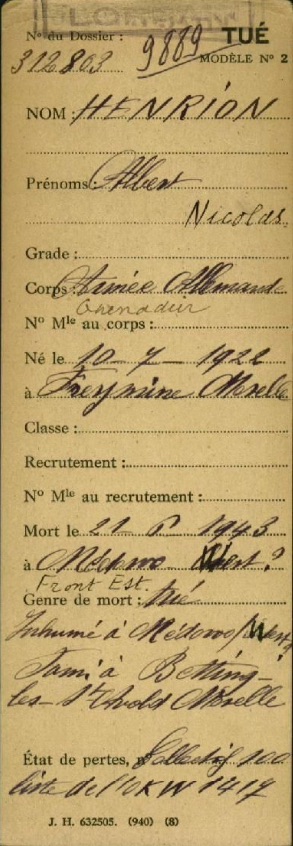 LORRAINE
N° du Dossier : 9889 TUÉ
312803 MODÈLE N° 2
NOM : HENRION
Prénoms : Albert
Nicolas
Grade :
Corps Armée Allemande
Grenadier
N° Mle au corps :
Né le 10 - 7 - 1922
à Freyming Moselle
Classe :
Recrutement :
N° Mle au recrutement :
Mort le 21 6 1943
à Médowo ?
Front Est.
Genre de mort : tué
Inhumé à Médowo
Fam. à Betting-
les-St Avold Moselle
État de pertes, Collectif 100
liste de l'OKW 1417
J. H. 632505. (940) (8)